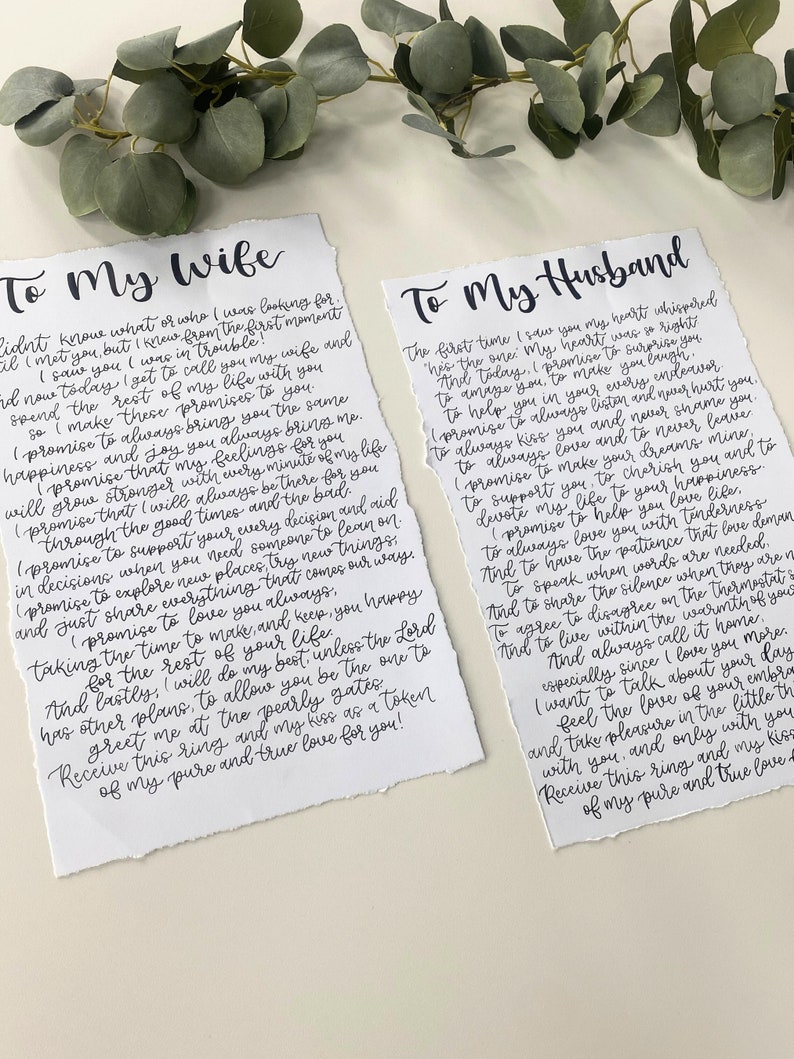 To My Wife
didnt know what or who I was looking for,
I met you, but I knew from the first moment
I saw you I was in trouble!
now today I get to call you my wife and
spend the rest of my life with you
so I make these promises to you.
I promise to always bring you the same
happiness and joy you always bring me.
I promise that my feelings for you
will grow stronger with every minute of my life
I promise that I will always be there for you
through the good times and the bad.
I promise to support your every decision and aid
in decisions when you need someone to lean on.
I promise to explore new places, try new things,
and just share everything that comes our way.
I promise to love you always,
taking the time to make, and keep, you happy
for the rest of your life.
And lastly, I will do my best, unless the Lord
has other plans, to allow you be the one to
greet me at the pearly gates
Receive this ring and my kiss as a token
of my pure and true love for you!
To My Husband
The first time I saw you my heart whispered
"hes the one." My heart was so right
And today, I promise to surprise you,
to amaze you, to make you laugh,
to help you in your every endeavor.
I promise to always listen and never hurt you,
to always kiss you and never shame you.
to always love and to never leave.
I promise to make your dreams mine,
to support you, to cherish you and to
devote my life to your happiness.
I promise to help you love life,
to always love you with tenderness
And to have the patience that love
to speak when words are needed,
And to share the silence when they are
To agree to disagree on the thermostat
And to live within the warmth of your
And always call it home,
especially since I love you more.
I want to talk about your day
feel the love of your
and take pleasure in the little
with you, and only with you
Receive this ring and my kiss
of my pure and true love